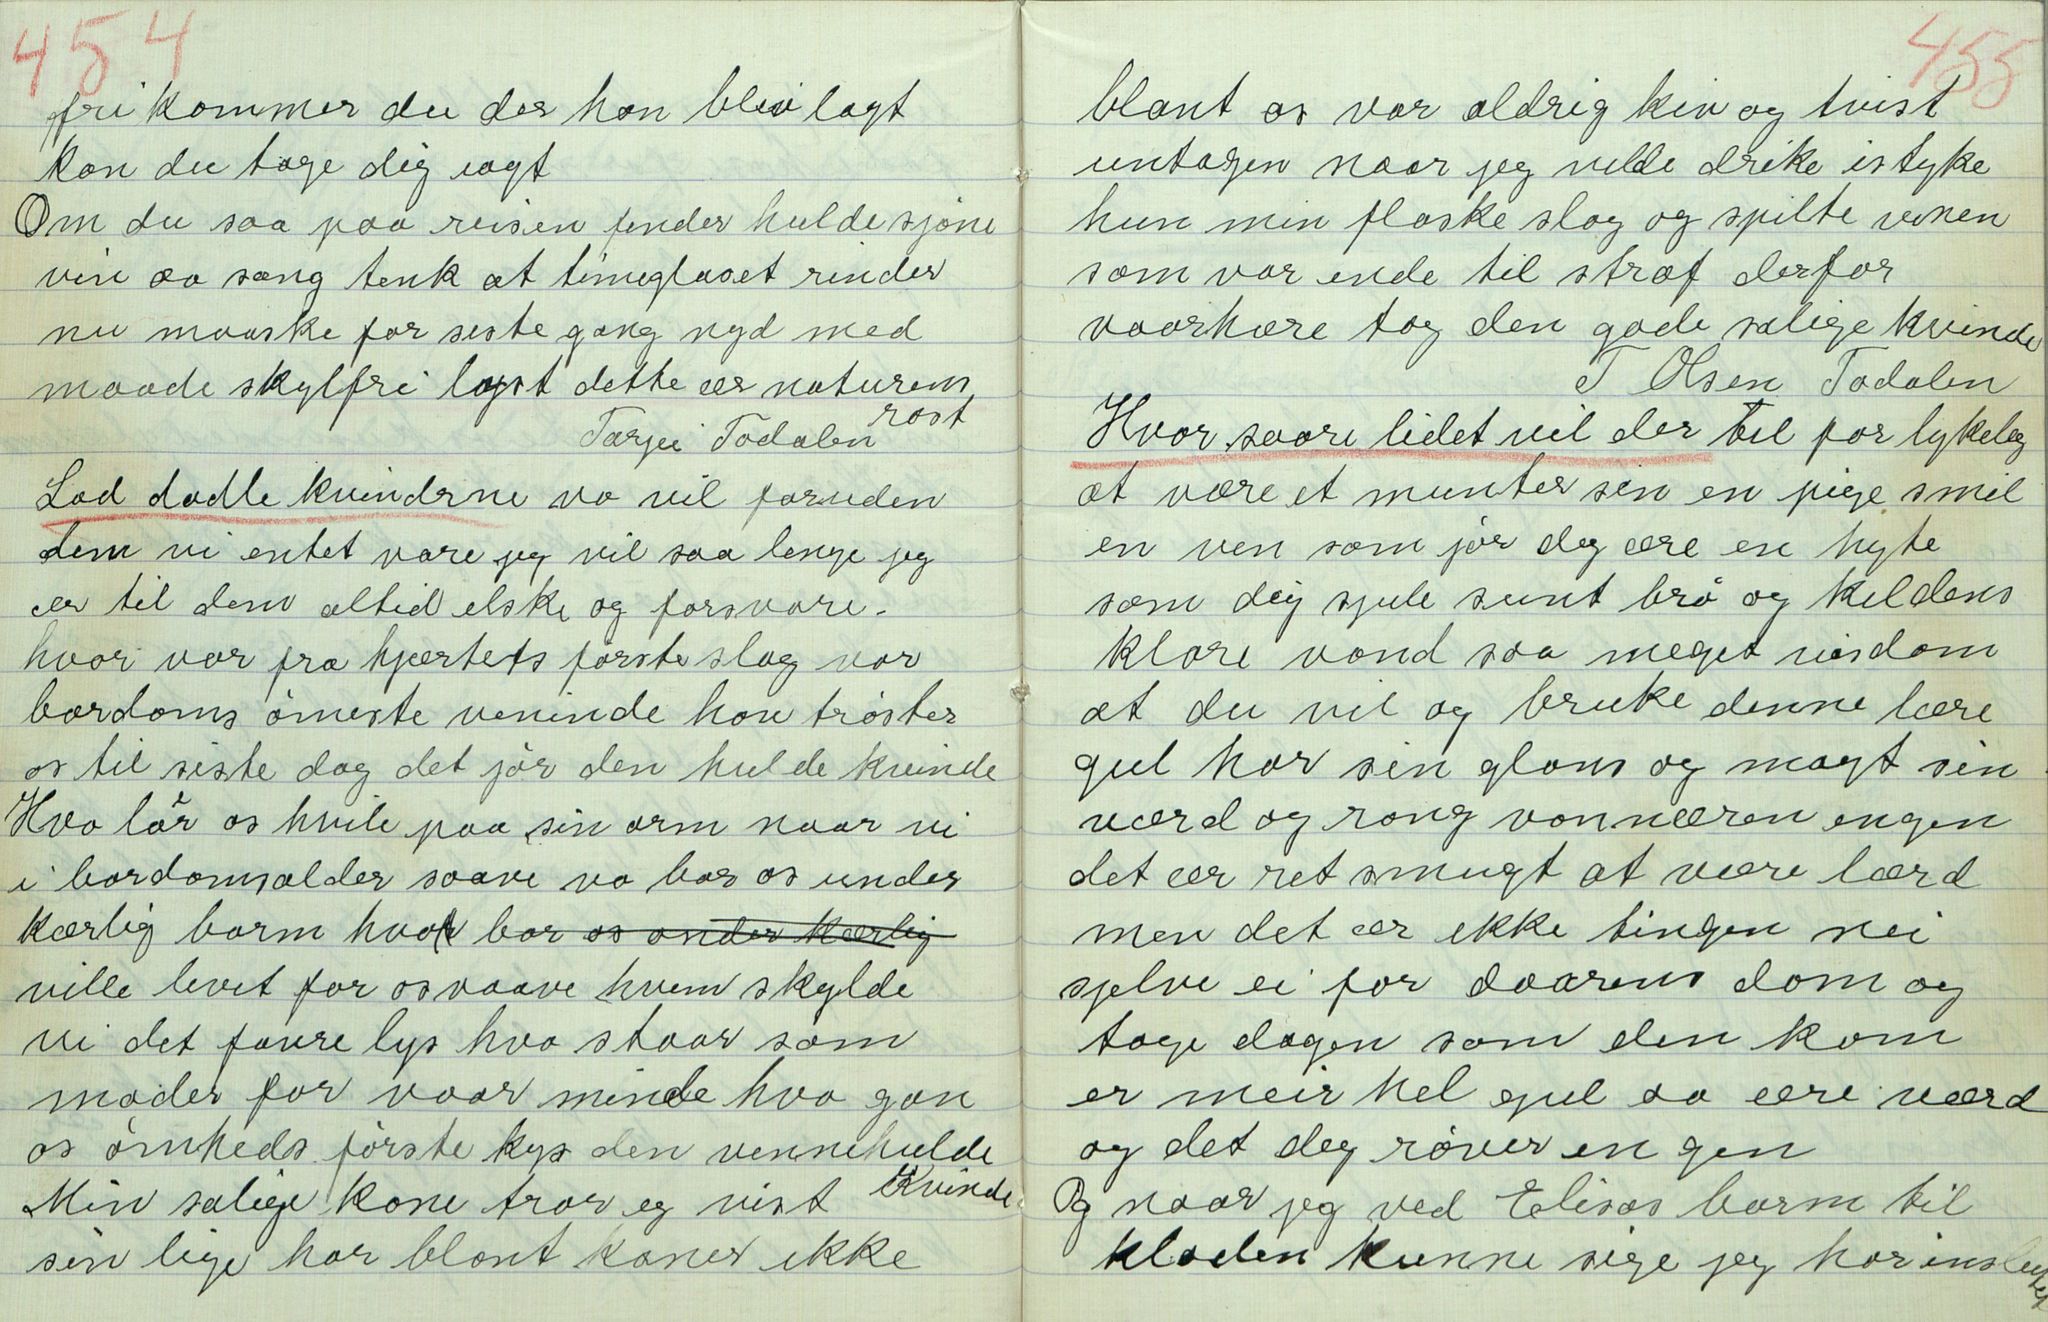 454
fri kommer du der han bleiv lagt
kan du tage dig iagt
Om du saa paa reisen finder hulde sjöne
vin aa sang tenk at timeglaset rinder
nu maaske for siste gang nyd med
maade skylfri lyst dette ær naturens
röst
Tarjei Todalen
Lad dadle kvinderne va vil foruden
dem vi entet vare jeg vil saa lenge jeg
ær til dem altid elske og forsvare.
hvor var fra hjærtets förste slag vor
bardoms ömeste veninde hon tröster
os til siste dag det jör den hulde kvinde
Hva lär os hvile paa sin arm naar vi
i bardomsalder saave va bar os under
kærlig barm hvor bar os onder kærlig
ville levet for os vaave hvem skylde
vi det favre lys hva staar som
moder for vaar minde hva gan
os ömheds förste kys den vennehulde
Kvinde
Min salige kone tror eg vist
sin lige har blant koner ikke
455
blant os var aldrig kiv og tvist
untagen naar jeg vilde drike istyke
hun min flaske slog og spilte vinen
som var ende til straf derfor
vaarhære tog den gode salige kvinde
T Olsen Todalen
Hvor saare lidet vil der til for lykeleg
at være et munter sin en pige smil
en ven som jör deg ære en hyte
som dig sjule sunt brö og kildens
klare vand saa meget visdom
at du vil og bruke denne lære
gul har sin glans og magt sin
værd og rang vannæren engen
det ær ret smugt at være lærd
men det ær ikke tingen nei
sjelve ei for daarens dom og
tage dagen som den kom
er meir hel gul aa ære værd
og det deg röver en gen
Og naar jeg ved Elisas barm til
kloden kunne sige jeg har inslutet